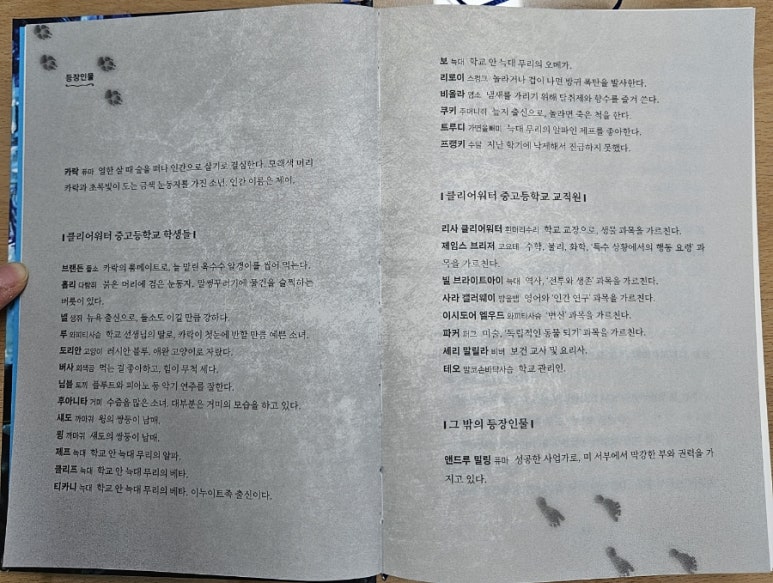 등장인물
카락 퓨마 열한 살 때 숲을 떠나 인간으로 살기로 결심한다. 모래색 머리
카락과 초록빛이 도는 금색 눈동자를 가진 소년. 인간 이름은 제이.
|클리어워터 중고등학교 학생들|
브랜든 들소 카락의 룸메이트로, 늘 말린 옥수수 알갱이를 씹어 먹는다.
홀리 다람쥐 붉은 머리에 검은 눈동자. 말썽꾸러기에 물건을 슬쩍하는
버릇이 있다.
넬 생쥐 뉴욕 출신으로, 들소도 이길 만큼 강하다.
루 와피티사슴 학교 선생님의 딸로, 카락이 첫눈에 반할 만큼 예쁜 소녀.
도리안 고양이 러시안 블루. 애완 고양이로 자랐다.
버사 회색곰 먹는 걸 좋아하고, 힘이 무척 세다.
님블 토끼 플루트와 피아노 등 악기 연주를 잘한다.
후아니타 거미 수줍음 많은 소녀. 대부분은 거미의 모습을 하고 있다.
섀도 까마귀 윙의 쌍둥이 남매.
윙 까마귀 섀도의 쌍둥이 남매.
제프 늑대 학교 안 늑대 무리의 알파.
클리프 늑대 학교 안 늑대 무리의 베타.
티카니 늑대 학교 안 늑대 무리의 베타. 이누이트족 출신이다.
보 늑대 학교 안 늑대 무리의 오메가.
리로이 스컹크 놀라거나 겁이 나면 방귀 폭탄을 발사한다.
비올라 염소 냄새를 가리기 위해 탈취제와 향수를 즐겨 쓴다.
쿠키 주머니쥐 늪지 출신으로, 놀라면 죽은 척을 한다.
트루디 가면올빼미 늑대 무리의 알파인 제프를 좋아한다.
프랭키 수달 지난 학기에 낙제해서 진급하지 못했다.
|클리어워터 중고등학교 교직원|
리사 클리어워터 흰머리수리 학교 교장으로, 생물 과목을 가르친다.
제임스 브리저 코요테 수학, 물리, 화학, ‘특수 상황에서의 행동 요령’ 과
목을 가르친다.
빌 브라이트아이 늑대 역사, ‘전투와 생존’ 과목을 가르친다.
사라 캘러웨이 방울뱀 영어와 ‘인간 연구’ 과목을 가르친다.
이시도어 엘우드 와피티사슴 ‘변신’ 과목을 가르친다.
파커 퍼그 미술, ‘독립적인 동물 되기’ 과목을 가르친다.
셰리 말릴라 비버 보건 교사 및 요리사.
테오 말코손바닥사슴 학교 관리인.
|그 밖의 등장인물|
앤드루 밀링 퓨마 성공한 사업가로, 미 서부에서 막강한 부와 권력을 가
지고 있다.